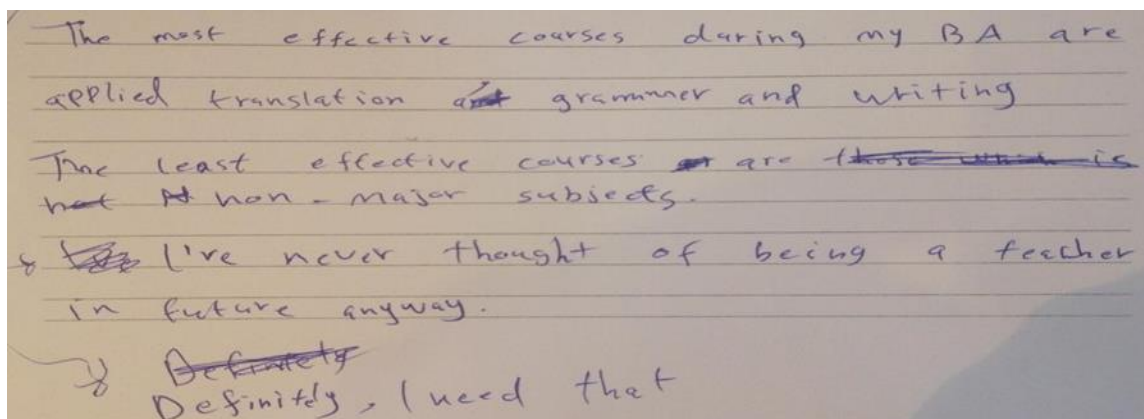 The most effective courses during my BA are
applied translation grammner and writing
The least effective courses are those which is
not non - major subjects.
I've never thought of being a teacher
in future anyway.
Definitely
Definitdy, I need that